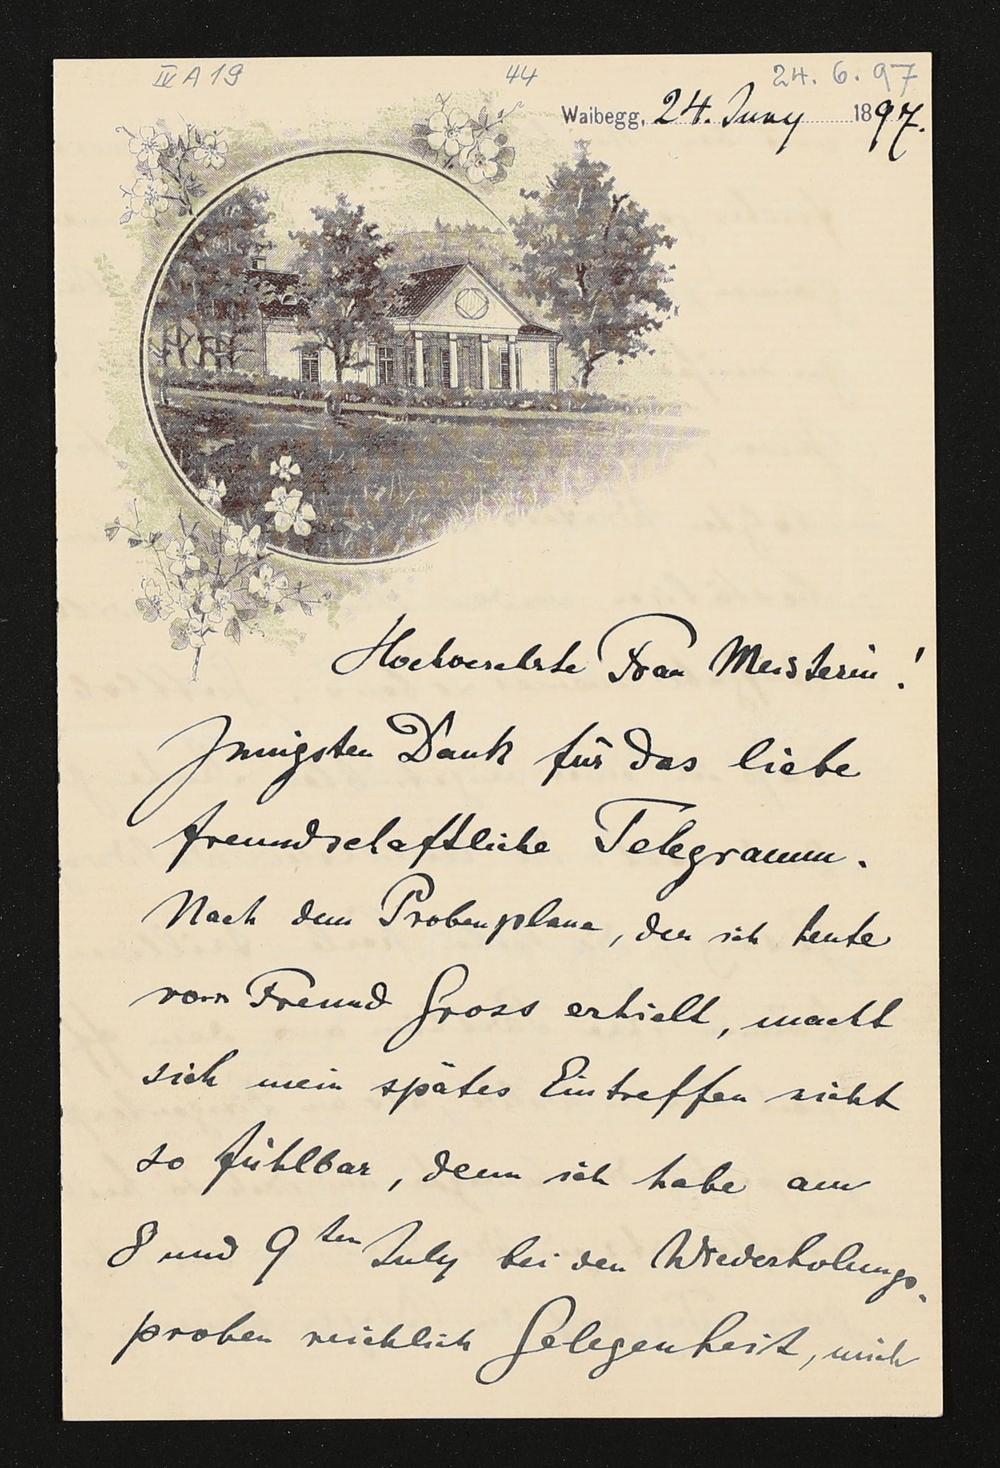 IV A 19
44
24. 6. 97
Waibegg, 24. Juny 1897.
Hochverehrte Frau Meisterin!
Innigsten Dank für das liebe
freundschaftliche Telegramm.
Nach dem Probenplane, den ich heute
vom Freund Gross erhielt, macht
sich mein spätes Eintreffen nicht
so fühlbar, denn ich habe am
8 und 9ten July bei den Wiederholungs-
proben reichlich Gelegenheit, mich